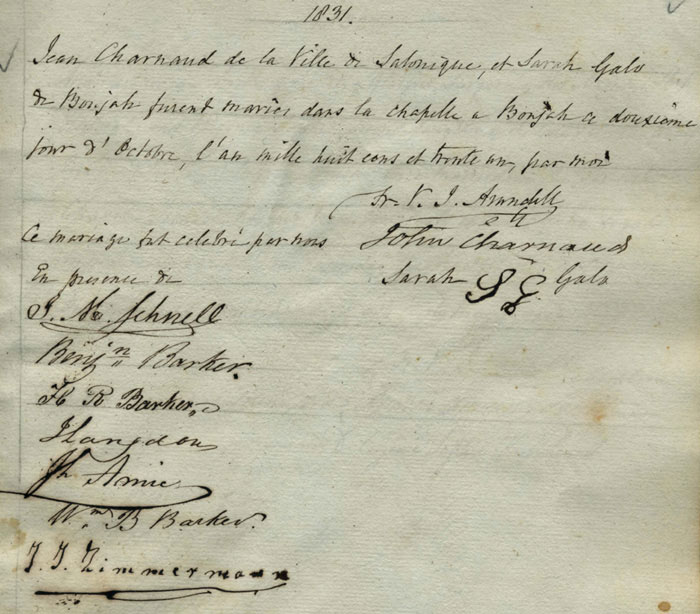 1831.
Jean Charnaud de la Ville de Salonique, et Sarah Galo
de Boujah furent mariés dans la chapelle a Boujah ce douxième
jour d'Octobre, l'an mille huit cens et trente un, par moi
Fr. V. J. Arundell
Ce mariage fut celebré par nous
John Charnaud
Sarah S G Galo
En presence de
J. Schnell
Benjn Barker.
H R Barker
J Langdon
Wm B Barker.
J. J. Zimmermann